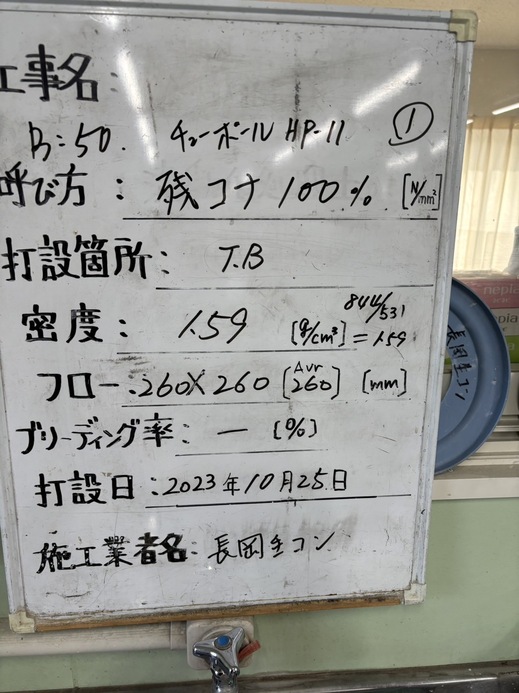 工事名:
B=50. チューポール HP-11 ①
呼び方: 残コナ 100% [N/mm²]
打設箇所: T.B
844/531
密度: 1.59 [g/cm³] = 1.59
フロー: 260×260 [Avr 260] [mm]
ブリーディング率: ー [%]
打設日: 2023年10月25日
施工業者名: 長岡生コン
長岡生コン
nepia